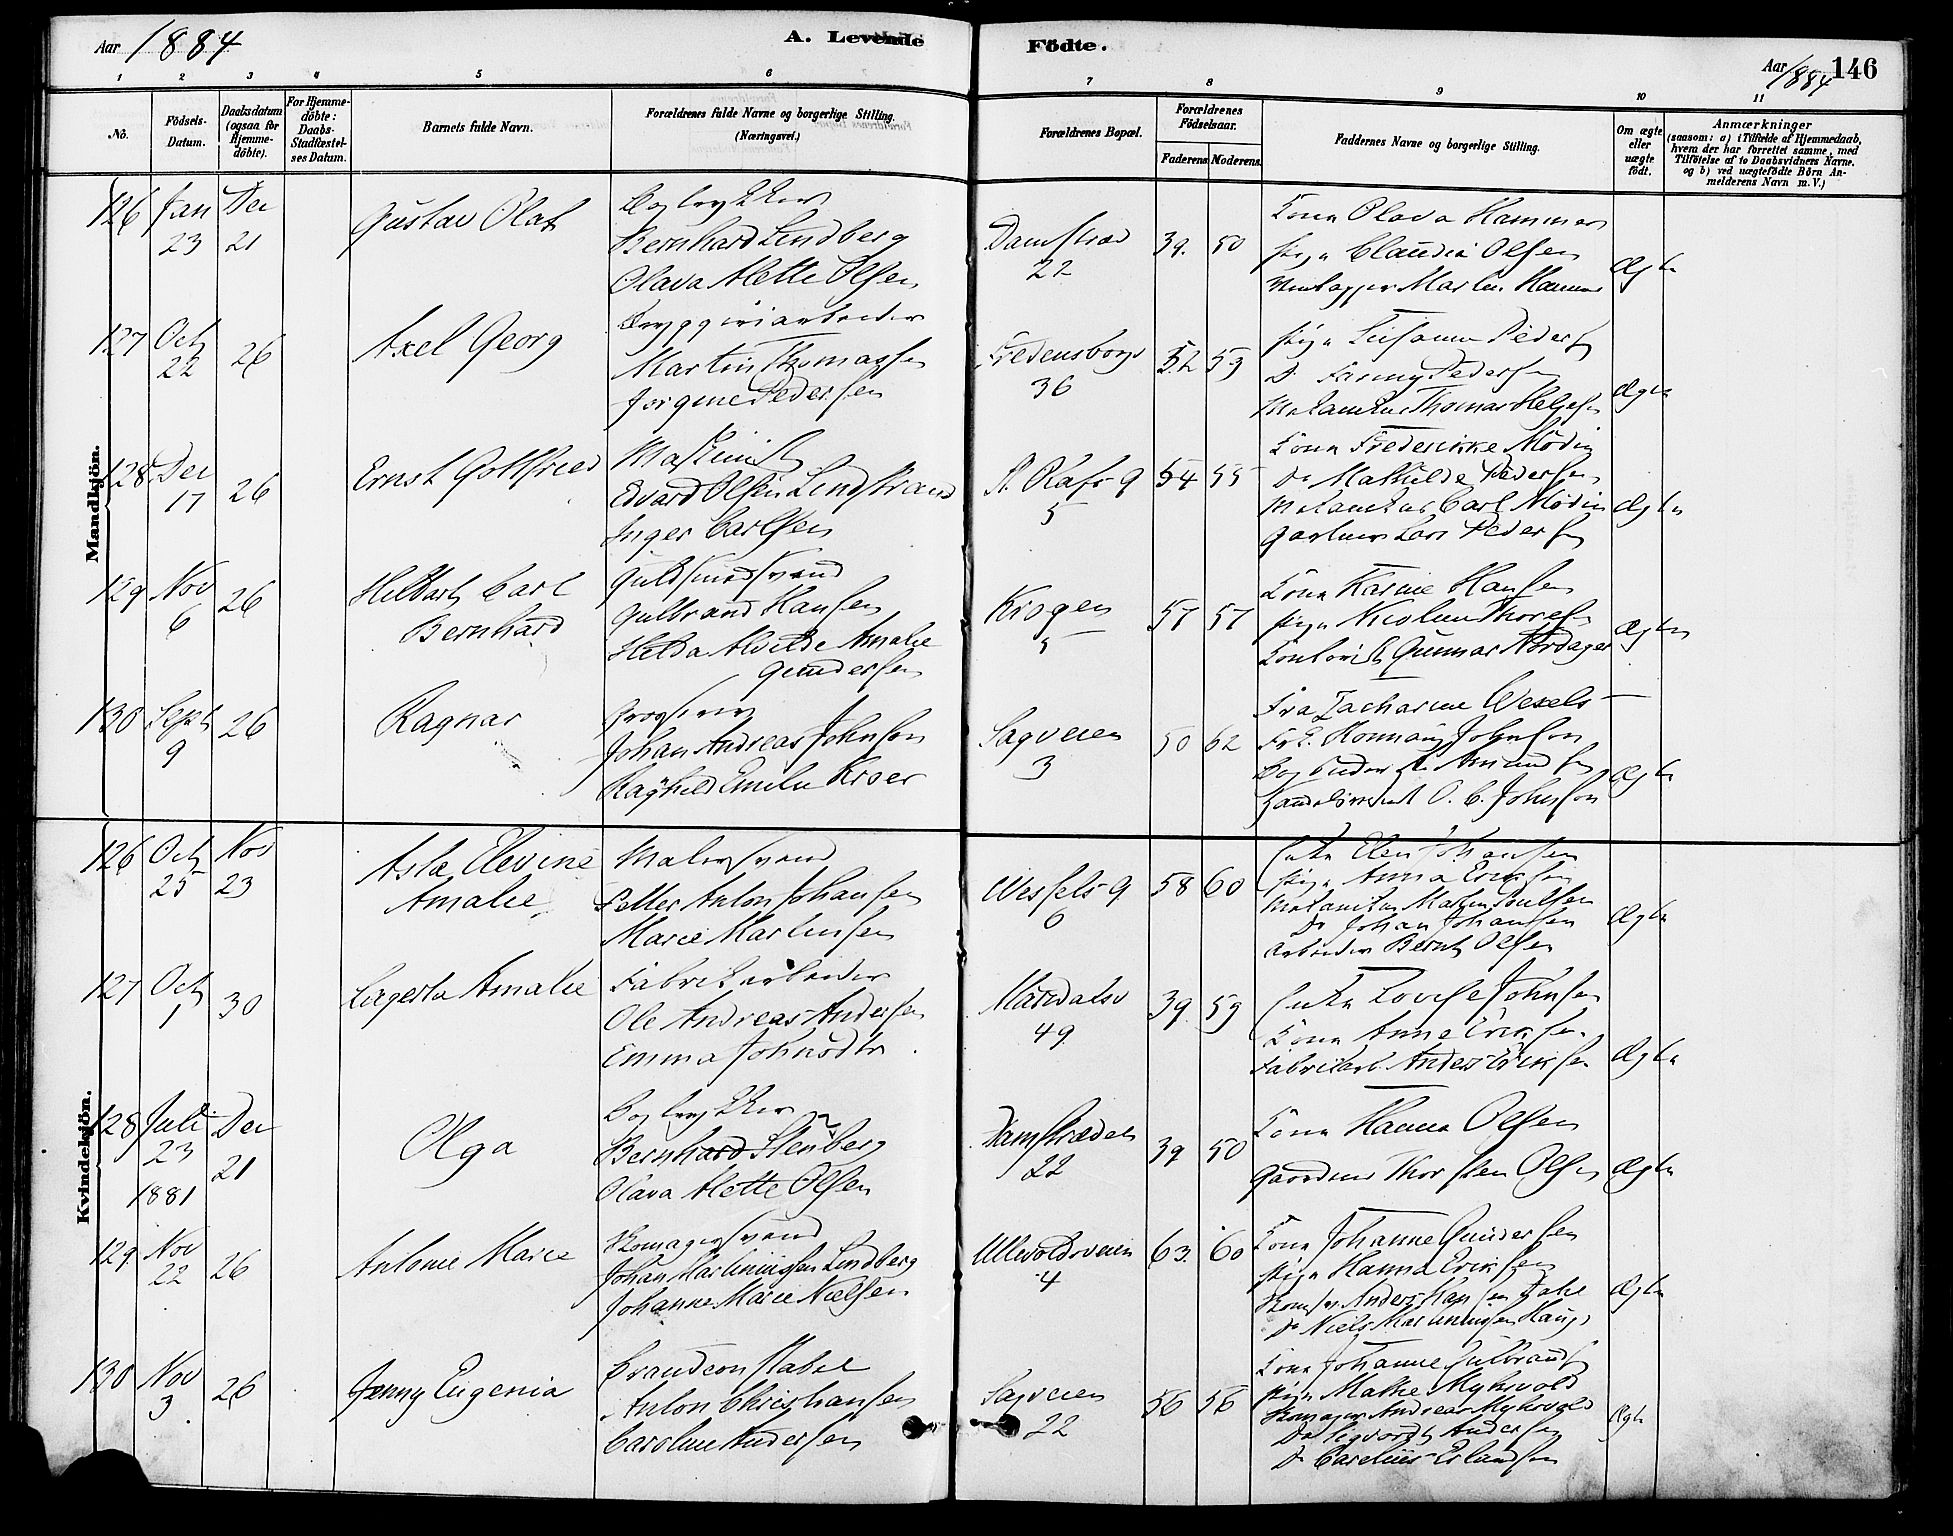 Aar 1884
A. Levende
Födte.
Aar 1884 146
1 2 3 4 5 6 7 8 9 10 11
No.
Födsels-Datum.
Daabsdatum (ogsaa for Hjemme-döbte).
For Hjemme-döbte: Daabs-Stadfæstel-ses Datum.
Barnets fulde Navn.
Forældrenes fulde Navne og borgerlige Stilling.
(Næringsvei.)
Forældrenes Bopæl.
Forældrenes Födselsaar.
Faderens Moderens
Faddernes Navne og borgerlige Stilling.
Om ægte eller uægte födt.
Anmærkninger
(saasom: a) i Tilfælde af Hjemmedaab,
hvem der har forrettet samme, med
Tilföielse af to Daabsvidners Navne.
og b) ved uægtefödte Börn An-
melderens Navn m. V.)
Mandkjön.
126 Jan 23 Dec 21
Gustav Olaf
Bogtrykker
Bernhard Lindberg
Olava Alette Olsen
Damstræd 22
39. 50
Kona Olava Hammer
Pige Claudia Olsen
Martin Hammer
Ægte
127 Oct 22 26
Axel Georg
Bryggeriarbeider
Martin Thomassen
Jörgine Pedersen
Fredensborgv 36
52 53
Pige Susanne Peders
Do Fanny Pedersen
Thomas Helgesen
Ægte
128 Dec 17 26
Ernst Gottfried
Maskinist
Edvard Olsen Lindstrand
Inger Carlsen
St. Olafs g 5
54 55
Kona Frederikke Modin
Do Mathilde Pedersen
Carl Modin
Gartner Lars Pedersen
Ægte
129 Nov 6 26
Helbart Carl Bernhard
Guldsmedsvend
Gulbrand Hansen
Hilda Alvilde Amalie Gundersen
Krogen 5
57 57
Kona Karine Hansen
Pige Nicoline Thoresen
Kontorist Gunnar Nordager
Ægte
130 Sept 9 26
Ragnar
Johan Andreas Johnson
Raghild Emilie Kroer
Sagveien 3
50 62
Fru Zacharine Wexels
Johnson
O. C. Johnson
Ægte
Kvindekjön.
126 Oct 25 Nov 23
Asta Elevine Amalie
Malersvend
Petter Anton Johansen
Marie Martinsen
Wessels g 6
58 60
Enke Elen Johansen
Pige Anna Eriksen
Martin Poulsen
Do Johan Johansen
Arbeider Bernt Olsen
Ægte
127 Oct 1 30
Lagerta Amalie
Fabrikarbeider
Ole Andreas Andersen
Emma Johnsdtr.
Maridalsv 49
39. 59
Enke Lovise Johnsen
Kona Anne Eriksen
Fabrikarb. Anders Eriksen
Ægte
128 Juli 23 1881 Dec 21
Olga
Bogtrykker
Bernhard Stenberg
Olava Alette Olsen
Damstrædet 22
39 50
Kona Hanna Olsen
Thorsten Olsen
Ægte
129. Nov 22 26
Antonie Marie
Skomagersvend
Johan Martiniussen Lindberg
Johanne Marie Nielsen
Ullevoldsveien 4
63. 60
Kona Johanne Gundersen
Pige Hanna Eriksen
Anders Hansen
Do Niels Martiniussen Haug
Ægte
130 Nov 3 26
Jenny Eugenia
Brandconstabel
Anton Christiansen
Caroline Andersen
Sagveien 22
56 56
Kona Johanne Gulbrands
Pige Mathe Myhrvold
Skomager Andreas Myhrvold
Do Sigvardt Andersen
Do Carelius Erlandsen
Ægte